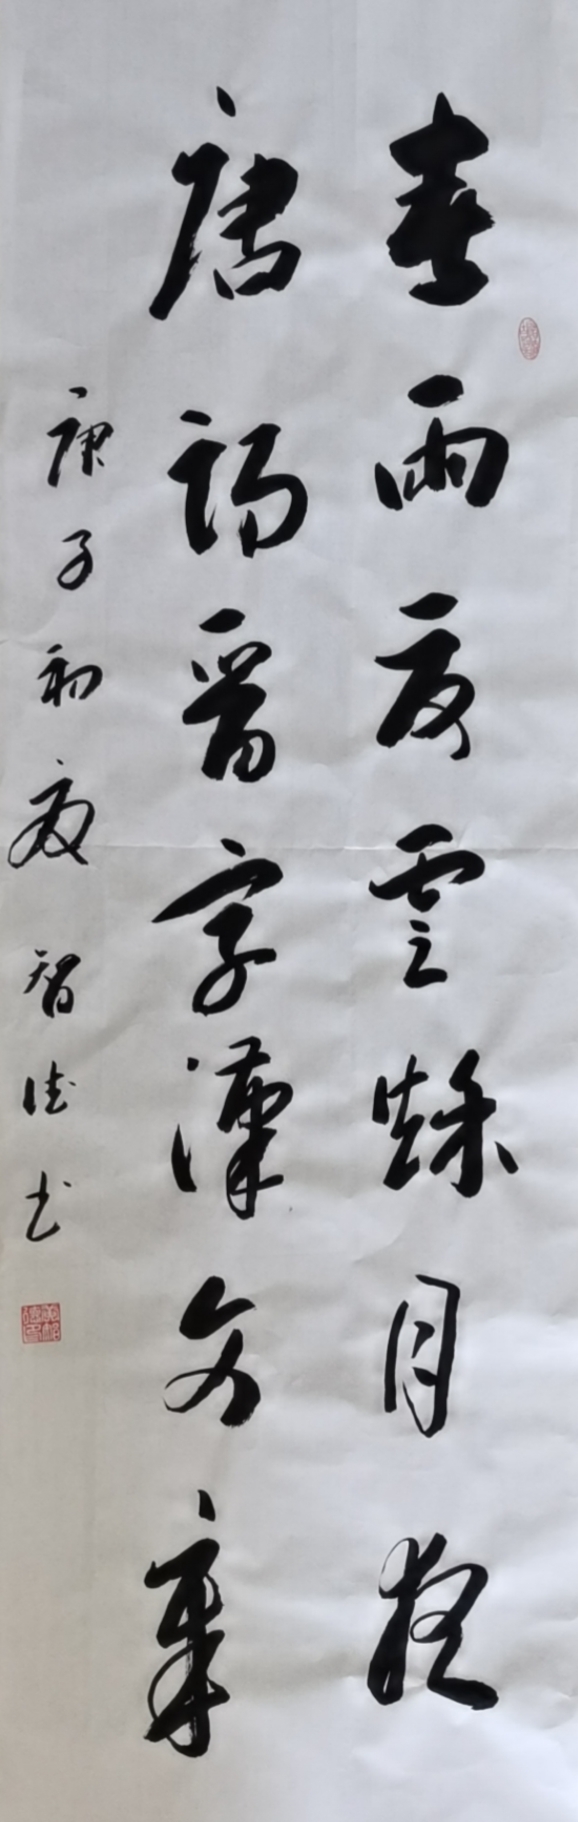 春雨夏雲秋月夜
唐詩晉字漢文章
庚子初夏智德书